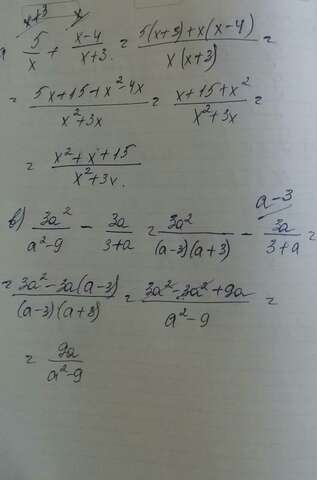 x+3 x
5/x + (x-4)/(x+3) = (5(x+3)+x(x-4))/(x(x+3)) =
= (5x+15+x²-4x)/(x²+3x) = (x+15+x²)/(x²+3x) =
= (x²+x+15)/(x²+3x).
a-3
в) 3a²/(a²-9) - 3a/(3+a) = 3a²/((a-3)(a+3)) - 3a/(3+a) =
= (3a²-3a(a-3))/((a-3)(a+3)) = (3a²-3a²+9a)/(a²-9) =
= 9a/(a²-9)